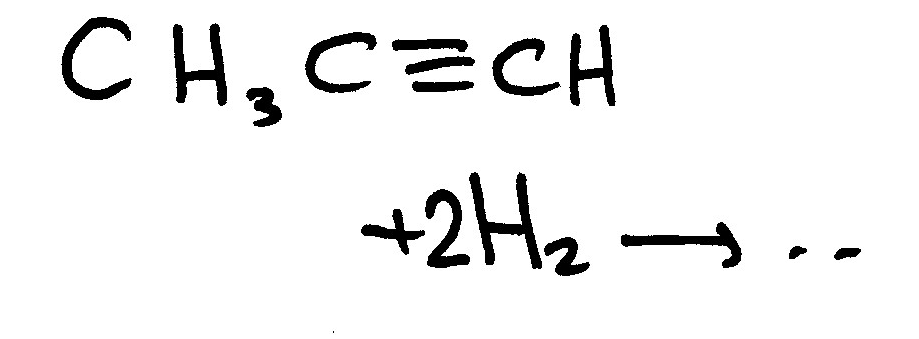 CH₃C≡CH
+2H₂ → ..